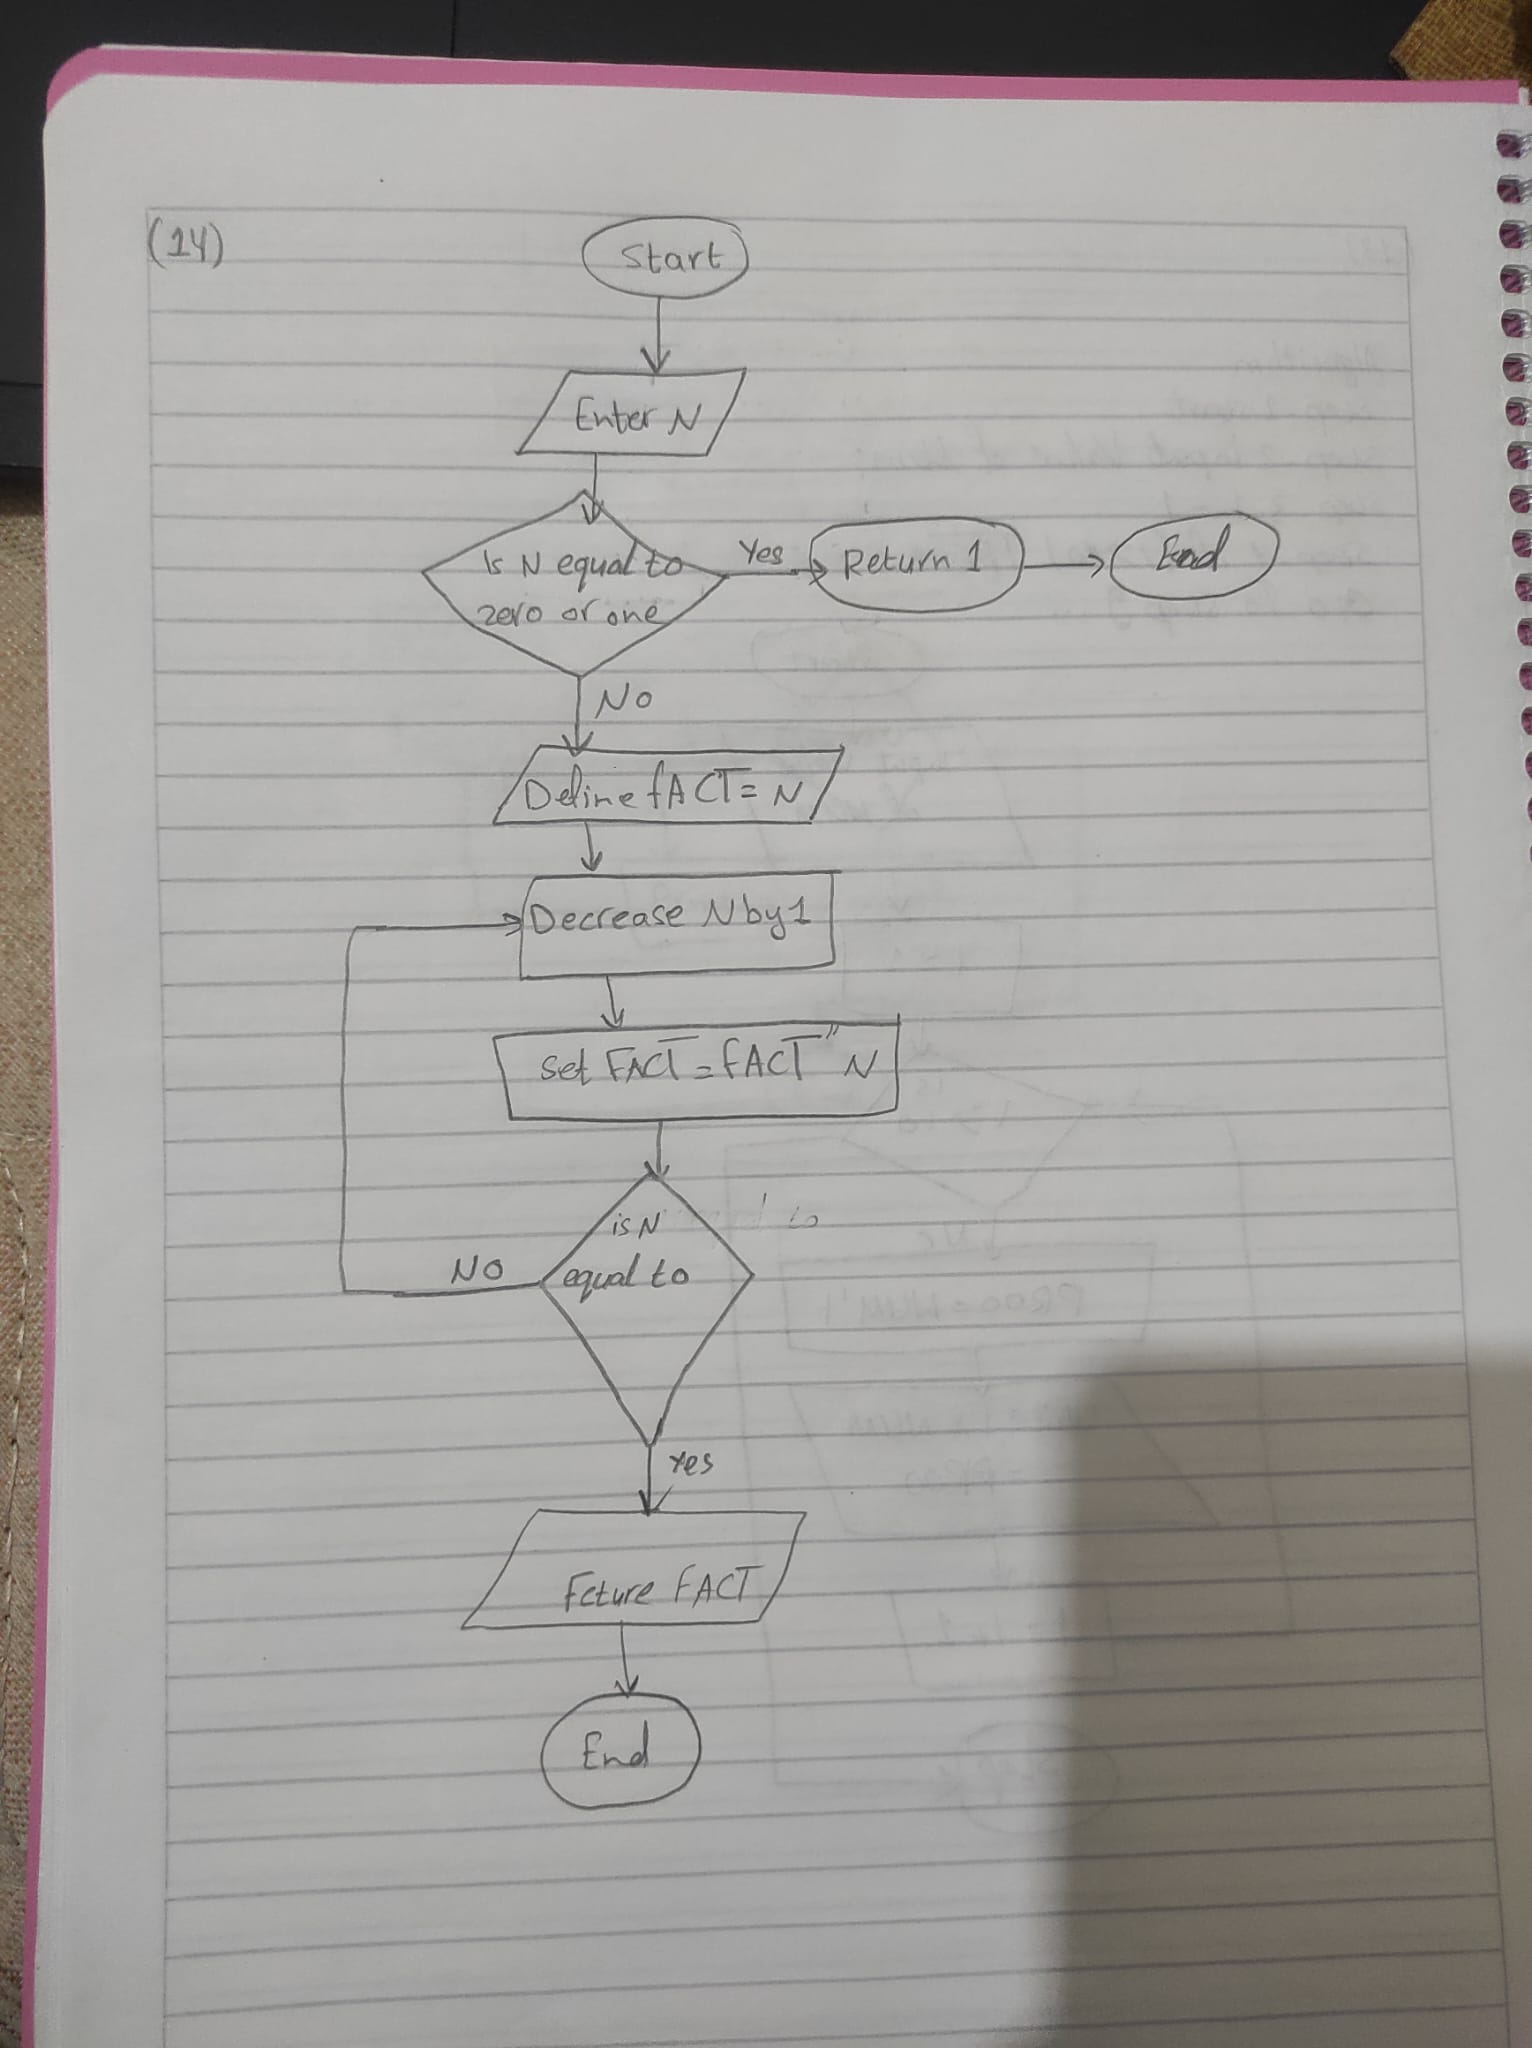 (14)
Start
Enter N
Is N equal to
zero or one
Yes
Return 1
End
No
Define fACT = N
Decrease N by 1
set FACT = fACT " N
is N
equal to
NO
Yes
Fcture fACT
End